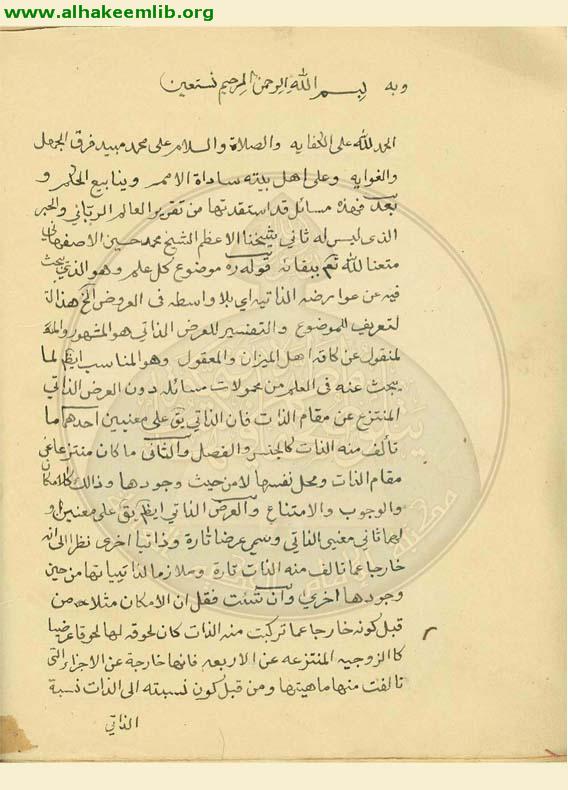 www.alhakeemlib.org
وبه بسم الله الرحمن الرحيم نستعين
الحمد لله على الكفايه والصلاة والسلام على محمد مبيد فرق الجهل
والغوايه وعلى اهل بيته ساداة الامم وينابيع الحكم و
بعد فهذه مسائل قد استفدتها من تقرير العالم الرباني والحبر
الذي ليس له ثاني شيخنا الاعظم الشيخ محمد حسين الاصفهاني
متعنا لله ببقائه قوله ره موضوع كل علم وهو الذي يبحث
فيه عن عوارضه الذاتيه اي بلا واسطه في العروض الخ هذا
لتعريف للموضوع والتفسير للعرض الذاتي هو المشهور
لمنقول عن كافه اهل الميزان والمعقول وهو المناسب ايظا لما
يبحث عنه في العلم من محمولات مسائله دون العرض الذاتي
المنتزع عن مقام الذات فان الذاتي يق على معنيين احدهما ما
تألف منه الذات كالجنس والفصل والثاني ما كان منتزعا عن
مقام الذات ومحل نفسها لا من حيث وجودها وذالك كالامكان
والوجوب والامتناع والعرض الذاتي ايظ يق على معنيين
ثاني معنيى الذاتي وسمى عرضا تارة وذاتيا اخرى نظرا الى انه
خارجا عما تالف منه الذات تارة وملازما لذاتياتها من حين
وجودها اخرى وان شئت فقل ان الامكان مثلا من
قبل كونه خارجا عما تركبت منه الذات كان لحوقه لها لحوقا عرضيا
كالزوجيه المنتزعه عن الاربعه فانها خارجة عن الاجزاء التي
تالفت منها ماهيتها ومن قبل كون نسبته الى الذات نسبة
الذاتي